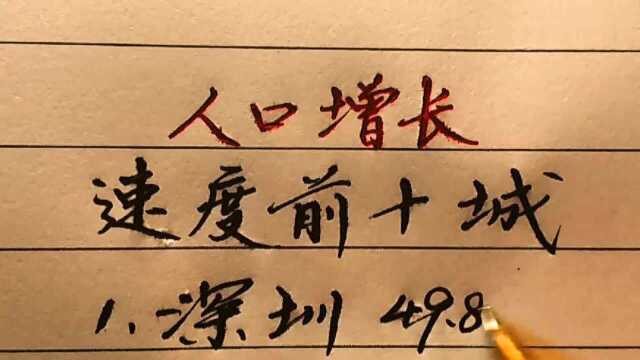 人口增长
速度前十城
1.深圳 49.8